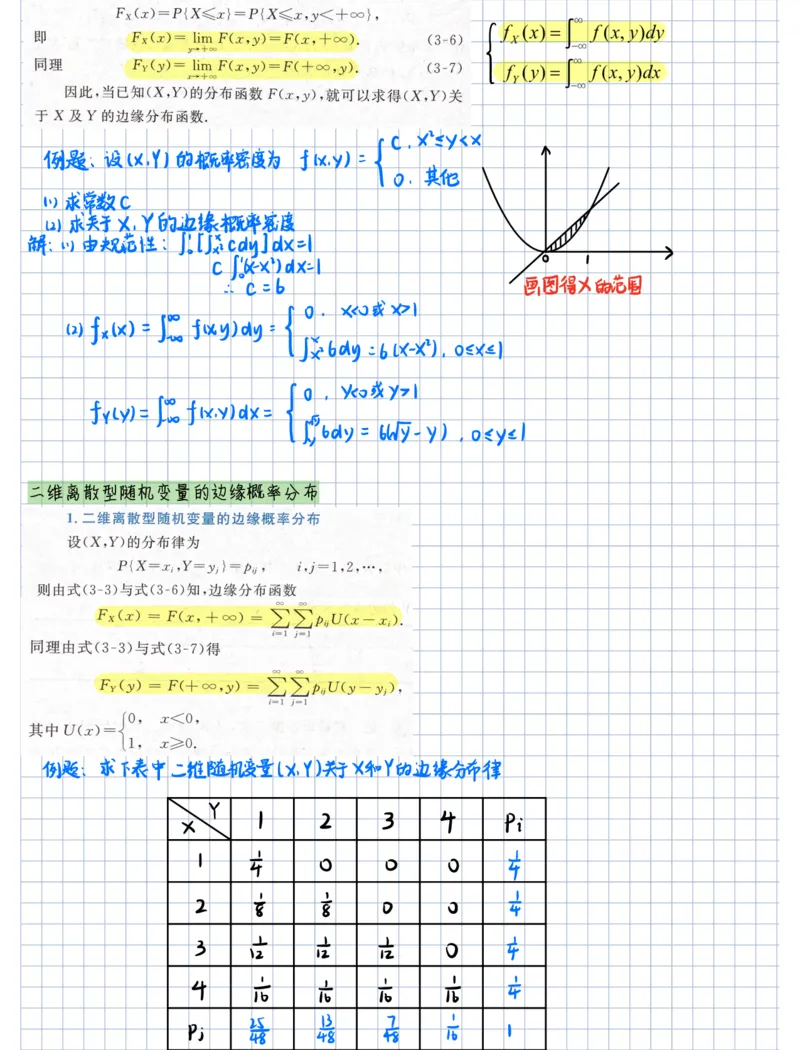 F_X(x)=P{X≤x}=P{X≤x,y<+∞},
即 F_X(x)= lim_{y→+∞} F(x,y)=F(x,+∞). (3-6)
同理 F_Y(y)= lim_{x→+∞} F(x,y)=F(+∞,y). (3-7)
因此,当已知(X,Y)的分布函数 F(x,y),就可以求得(X,Y)关
于 X 及 Y 的边缘分布函数.
f_X(x)=∫_{-∞}^{∞} f(x,y)dy
f_Y(y)=∫_{-∞}^{∞} f(x,y)dx
例题: 设(X,Y)的概率密度为 f(x,y)={ C, x²≤y<x
0, 其他
(1) 求常数C
(2) 求关于X,Y的边缘概率密度
解: (1) 由规范性: ∫_0^1[∫_{x²}^x cdy]dx=1
C∫_0^1(x-x²)dx=1
∴ C=6
0 1
画图得X的范围
(2) f_X(x)=∫_{-∞}^{∞} f(x,y)dy={ 0, x<0或x>1
∫_{x²}^x 6dy=6(x-x²), 0≤x≤1
f_Y(y)=∫_{-∞}^{∞} f(x,y)dx={ 0, y<0或y>1
∫_y^{√y} 6dy=6(√y-y), 0≤y≤1
二维离散型随机变量的边缘概率分布
1.二维离散型随机变量的边缘概率分布
设(X,Y)的分布律为
P{X=x_i,Y=y_j}=p_{ij}, i,j=1,2,…,
则由式(3-3)与式(3-6)知,边缘分布函数
F_X(x)=F(x,+∞)=∑_{i=1}^{∞}∑_{j=1}^{∞}p_{ij}U(x-x_i).
同理由式(3-3)与式(3-7)得
F_Y(y)=F(+∞,y)=∑_{i=1}^{∞}∑_{j=1}^{∞}p_{ij}U(y-y_j),
其中U(x)={ 0, x<0,
1, x≥0.
例题: 求下表中二维随机变量(X,Y)关于X和Y的边缘分布律
X Y 1 2 3 4 Pi
1 1/4 0 0 0 1/4
2 1/8 1/8 0 0 1/4
3 1/12 1/12 1/12 0 1/4
4 1/16 1/16 1/16 1/16 1/4
Pj 25/48 13/48 7/48 1/16 1